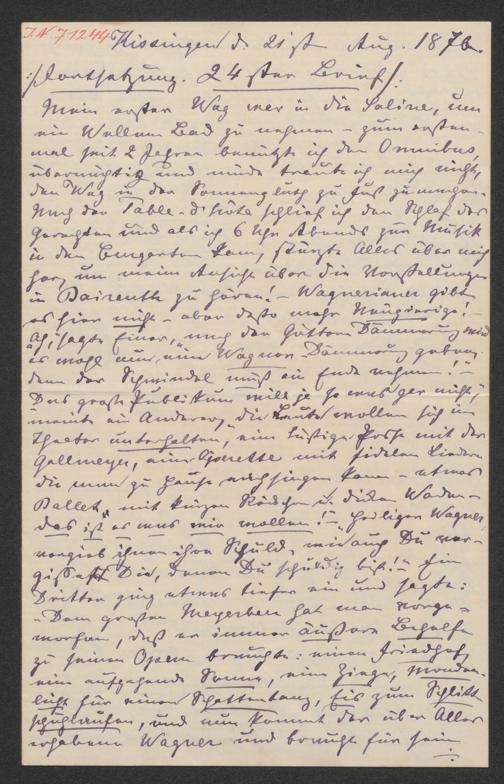 I.N 71244
Kissingen d. 21st Aug. 1876
/: Fortsetzung. 24ster Brief :/
Mein erster Weg war in die Saline, um
ein Wellen Bad zu nehmen – zum ersten-
mal seit 2 Jahren benutzte ich den Omnibus,
übernächtig und müde traute ich mich nicht,
den Weg in der Sonnengluth zu Fuß zu machen.
Nach der Table-d'hôte schlief ich den Schlaf des
Gerechten und als ich 6 Uhr Abends zur Musik
in den Curgarten kam, stürzte Alles über mich
her, um meine Ansicht über die Vorstellungen
in Baireuth zu hören! – Wagnerianer gibt
es hier nicht – aber desto mehr Neugierige! –
"Ach, sagte Einer, "nach der Götter Dämmerung wird
es wohl nun eine Wagner Dämmerung geben,
denn der Schwindel muß ein Ende nehmen! –
Das große Publikum will ja so was gar nicht,"
meinte ein Anderer, "die Leute wollen sich im
Theater unterhalten, eine lustige Posse mit der
Gallmeyer, eine Operette mit fidelen Liedern
die man zu Hause nachsingen kann – etwas
Ballet, mit kurzen Röckchen u. dicken Waden –
das ist es was wir wollen! – Heiliger Wagner,
vergieb ihnen ihre Schuld, wie auch Du ver-
gissest Die, denen Du schuldig bist! – Ein
Dritter ging etwas tiefer ein und sagte:
"Dem großen Meyerbeer hat man vorge-
worfen, daß er immer äußere Behelfe
zu seinen Opern brauchte: einen Friedhof,
eine aufgehende Sonne, eine Ziege, Monden-
licht für einen Schattentanz, Eis zum Schlitt-
schuhlaufen, und nun kommt der über Alles
erhabene Wagner und braucht für sein